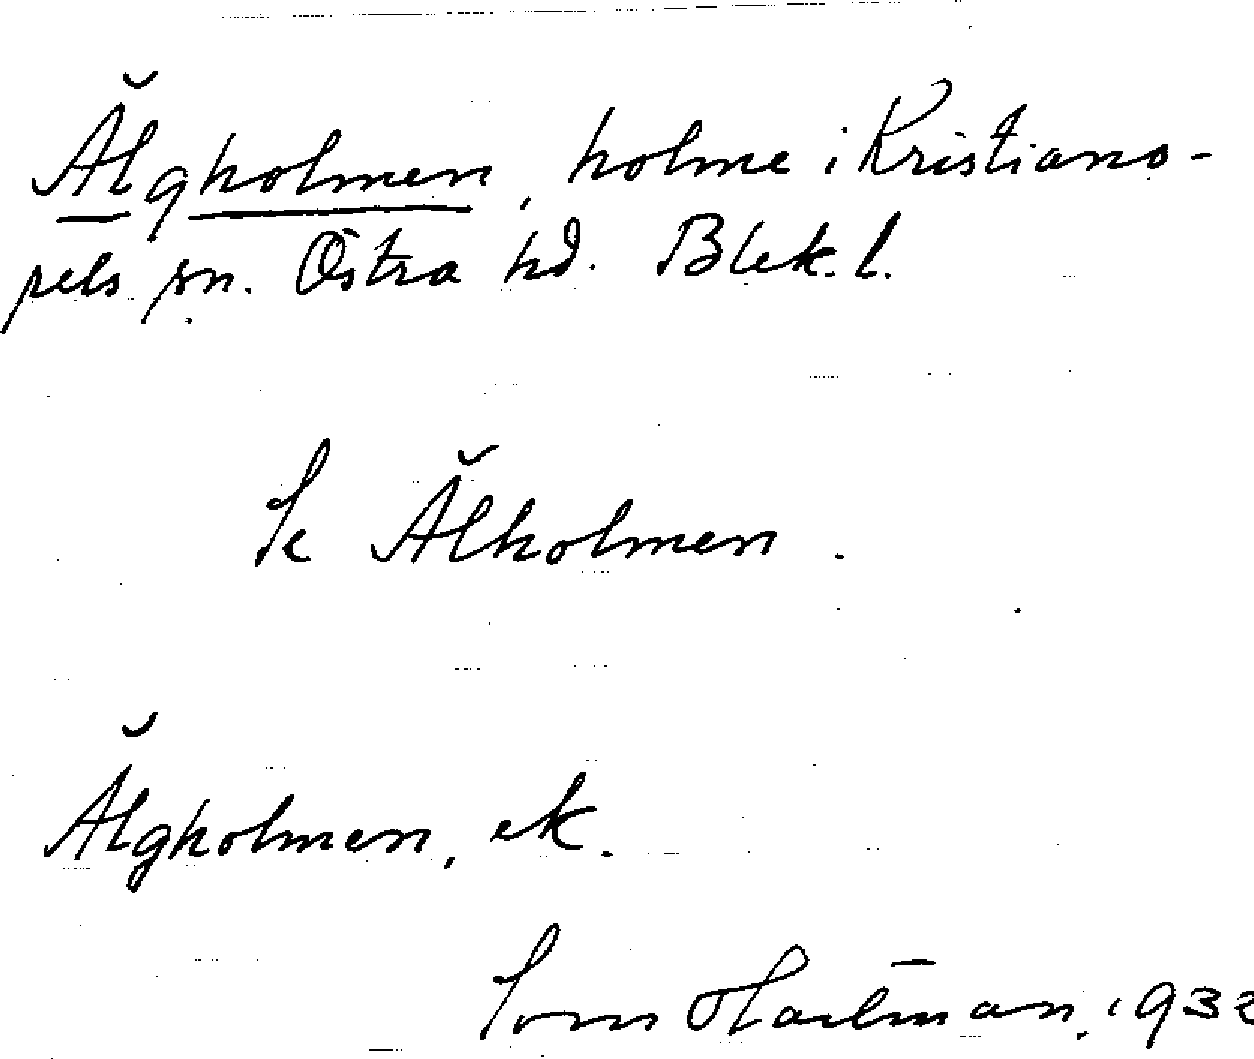 Älgholmen, holme i Kristiano-
pels sn. Östra hd. Blek. l.
Se Älholmen.
Älgholmen, ek.
Sven Hartman, 1932